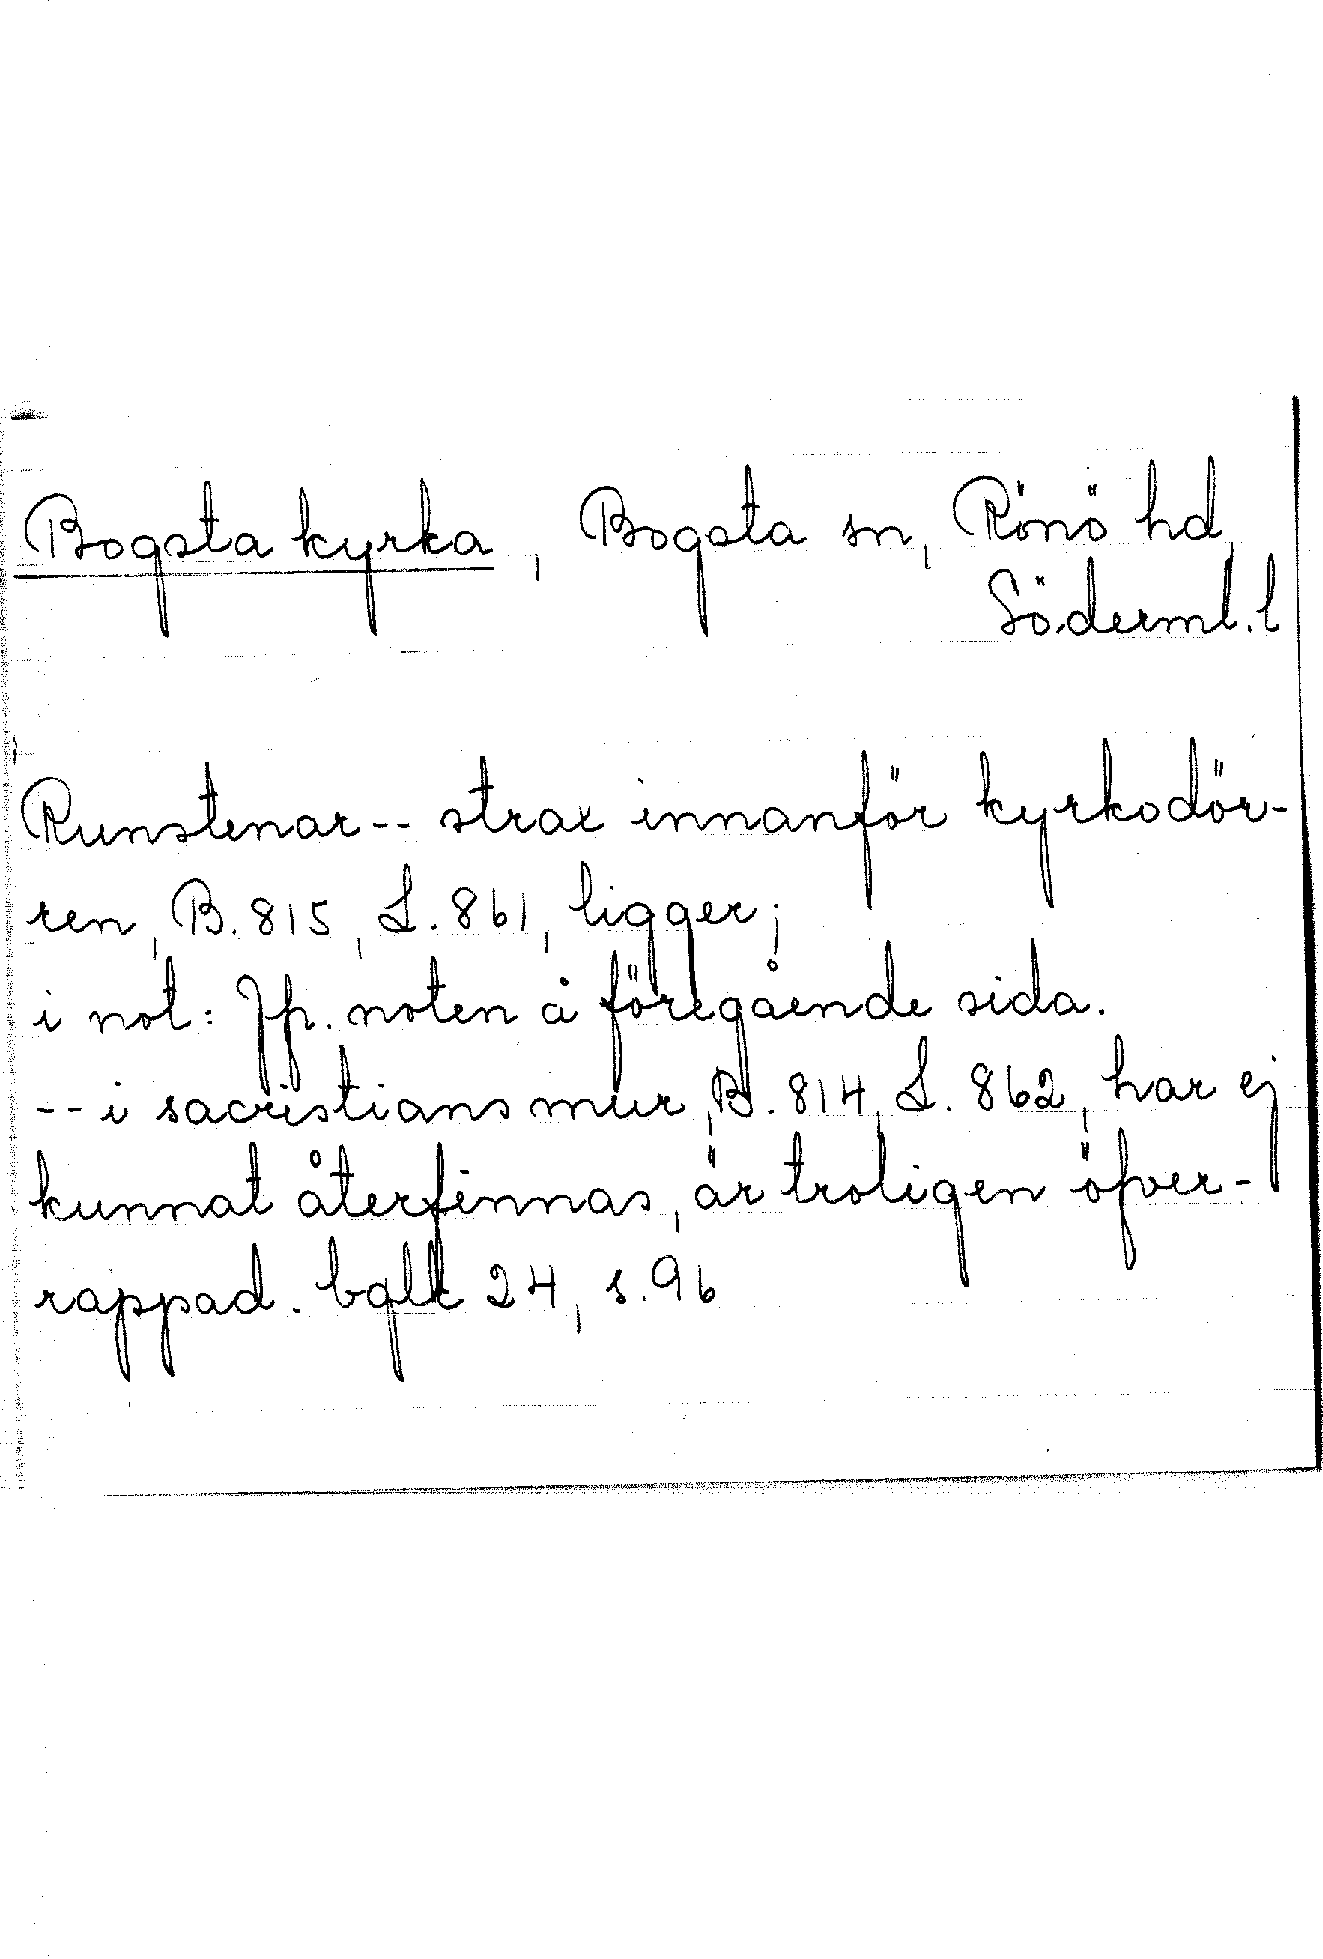 Bogsta kyrka, Bogsta sn, Rönö hd,
Söderml. l
Runstenar -- strax innanför kyrkodör-
ren, B. 815, L. 861, ligger;
i not: Jfr. noten å föregående sida.
-- i sacristians mur, B. 814, L. 862, har ej
kunnat återfinnas, är troligen öfver-
rappad. bqlk 24, s. 96